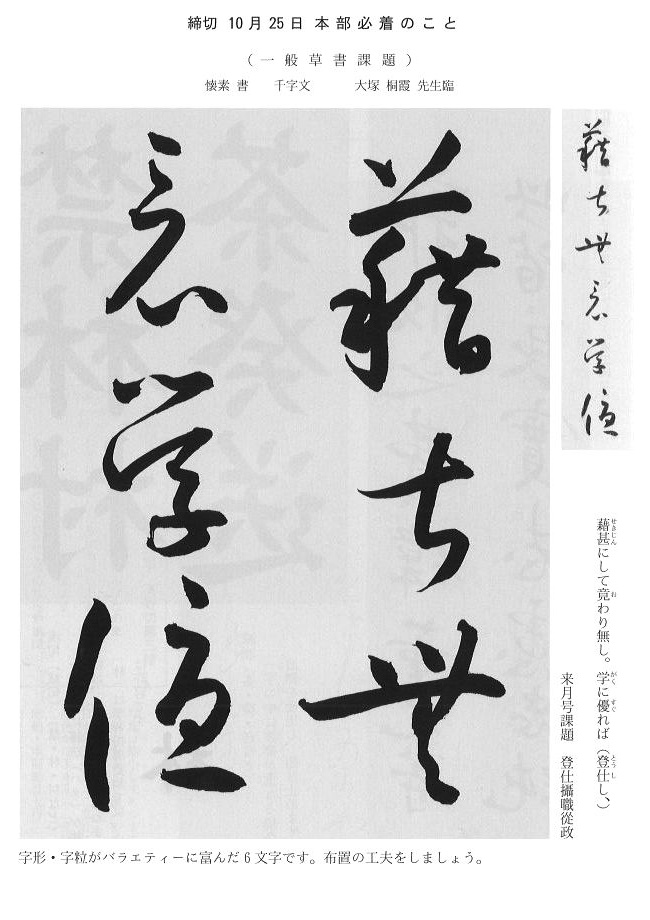 締切 10月25日 本部必着のこと
(一般草書課題)
懐素 書 千字文 大塚 桐霞 先生臨
藉甚無竟学優
藉甚無
竟学優
藉甚にして竟わり無し。学に優れば(登仕し、)
せきじん お がく すぐ とうし
来月号課題 登仕攝職從政
字形・字粒がバラエティーに富んだ6文字です。布置の工夫をしましょう。